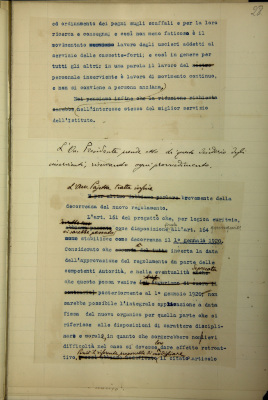 28
ed ordinamento dei pegni sugli scaffali e per la loro
ricerca e consegna; e così non meno faticoso è il
movimentato lavoro degli uscieri addetti al
servizio delle cassette-forti; e così in genere per
tutti gli altri: in una parola il lavoro del
personale inserviente è lavoro di movimento continuo,
e non si conviene a persone anziane.
nell'interesse stesso del miglior servizio
dell'Istituto.
L'On. Presidente prende atto di questo desiderio degli
inservienti, riservando ogni provvedimento.
L'On. Pajetta tratta infine
brevemente della
decorrenza del nuovo regolamento.
L'art. 161 del progetto che, per logica euritmia,
ogni disposizione all'art. 164
stabilisce come decorrenza il 1° gennaio 1920.
Considerato che incerta la data
dell'approvazione del regolamento da parte delle
competenti Autorità, e nella eventualità
che questa possa venire
posteriormente al 1° gennaio 1920, non
sarebbe possibile l'integrale applicazione a date
fisse del nuovo organico per quella parte che si
riferisce alle disposizioni di carattere discipli-
nare e morale in quanto che sorgerebbero
difficoltà nel caso si dovesse dare effetto retroat-
tivo, il citato articolo